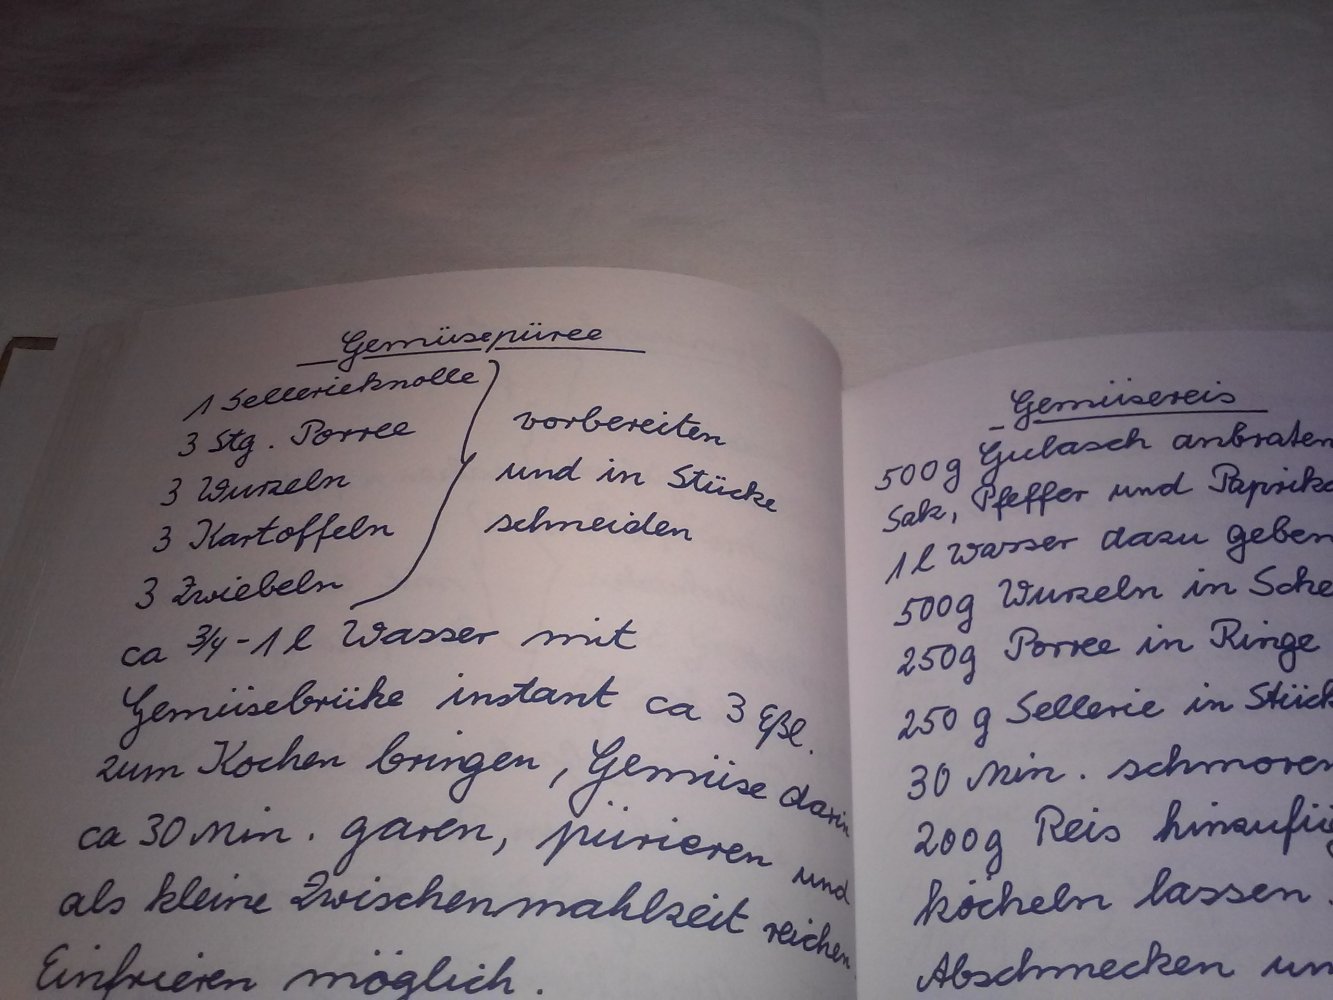 Gemüsepüree
1 Sellerieknolle
3 Stg. Porree
3 Wurzeln
3 Kartoffeln
3 Zwiebeln
vorbereiten
und in Stücke
schneiden
ca 3/4 - 1 l Wasser mit
Gemüsebrühe instant ca 3 Eßl.
zum Kochen bringen, Gemüse darin
ca 30 Min. garen, pürieren und
als kleine Zwischenmahlzeit reichen.
Einfrieren möglich.
Gemüsereis
500g Gulasch anbraten
Salz, Pfeffer und Paprika
1 l Wasser dazu geben
500g Wurzeln in Sche
250g Porree in Ringe
250 g Sellerie in Stück
30 Min. schmoren
200g Reis hinzufüg
köcheln lassen.
Abschmecken un